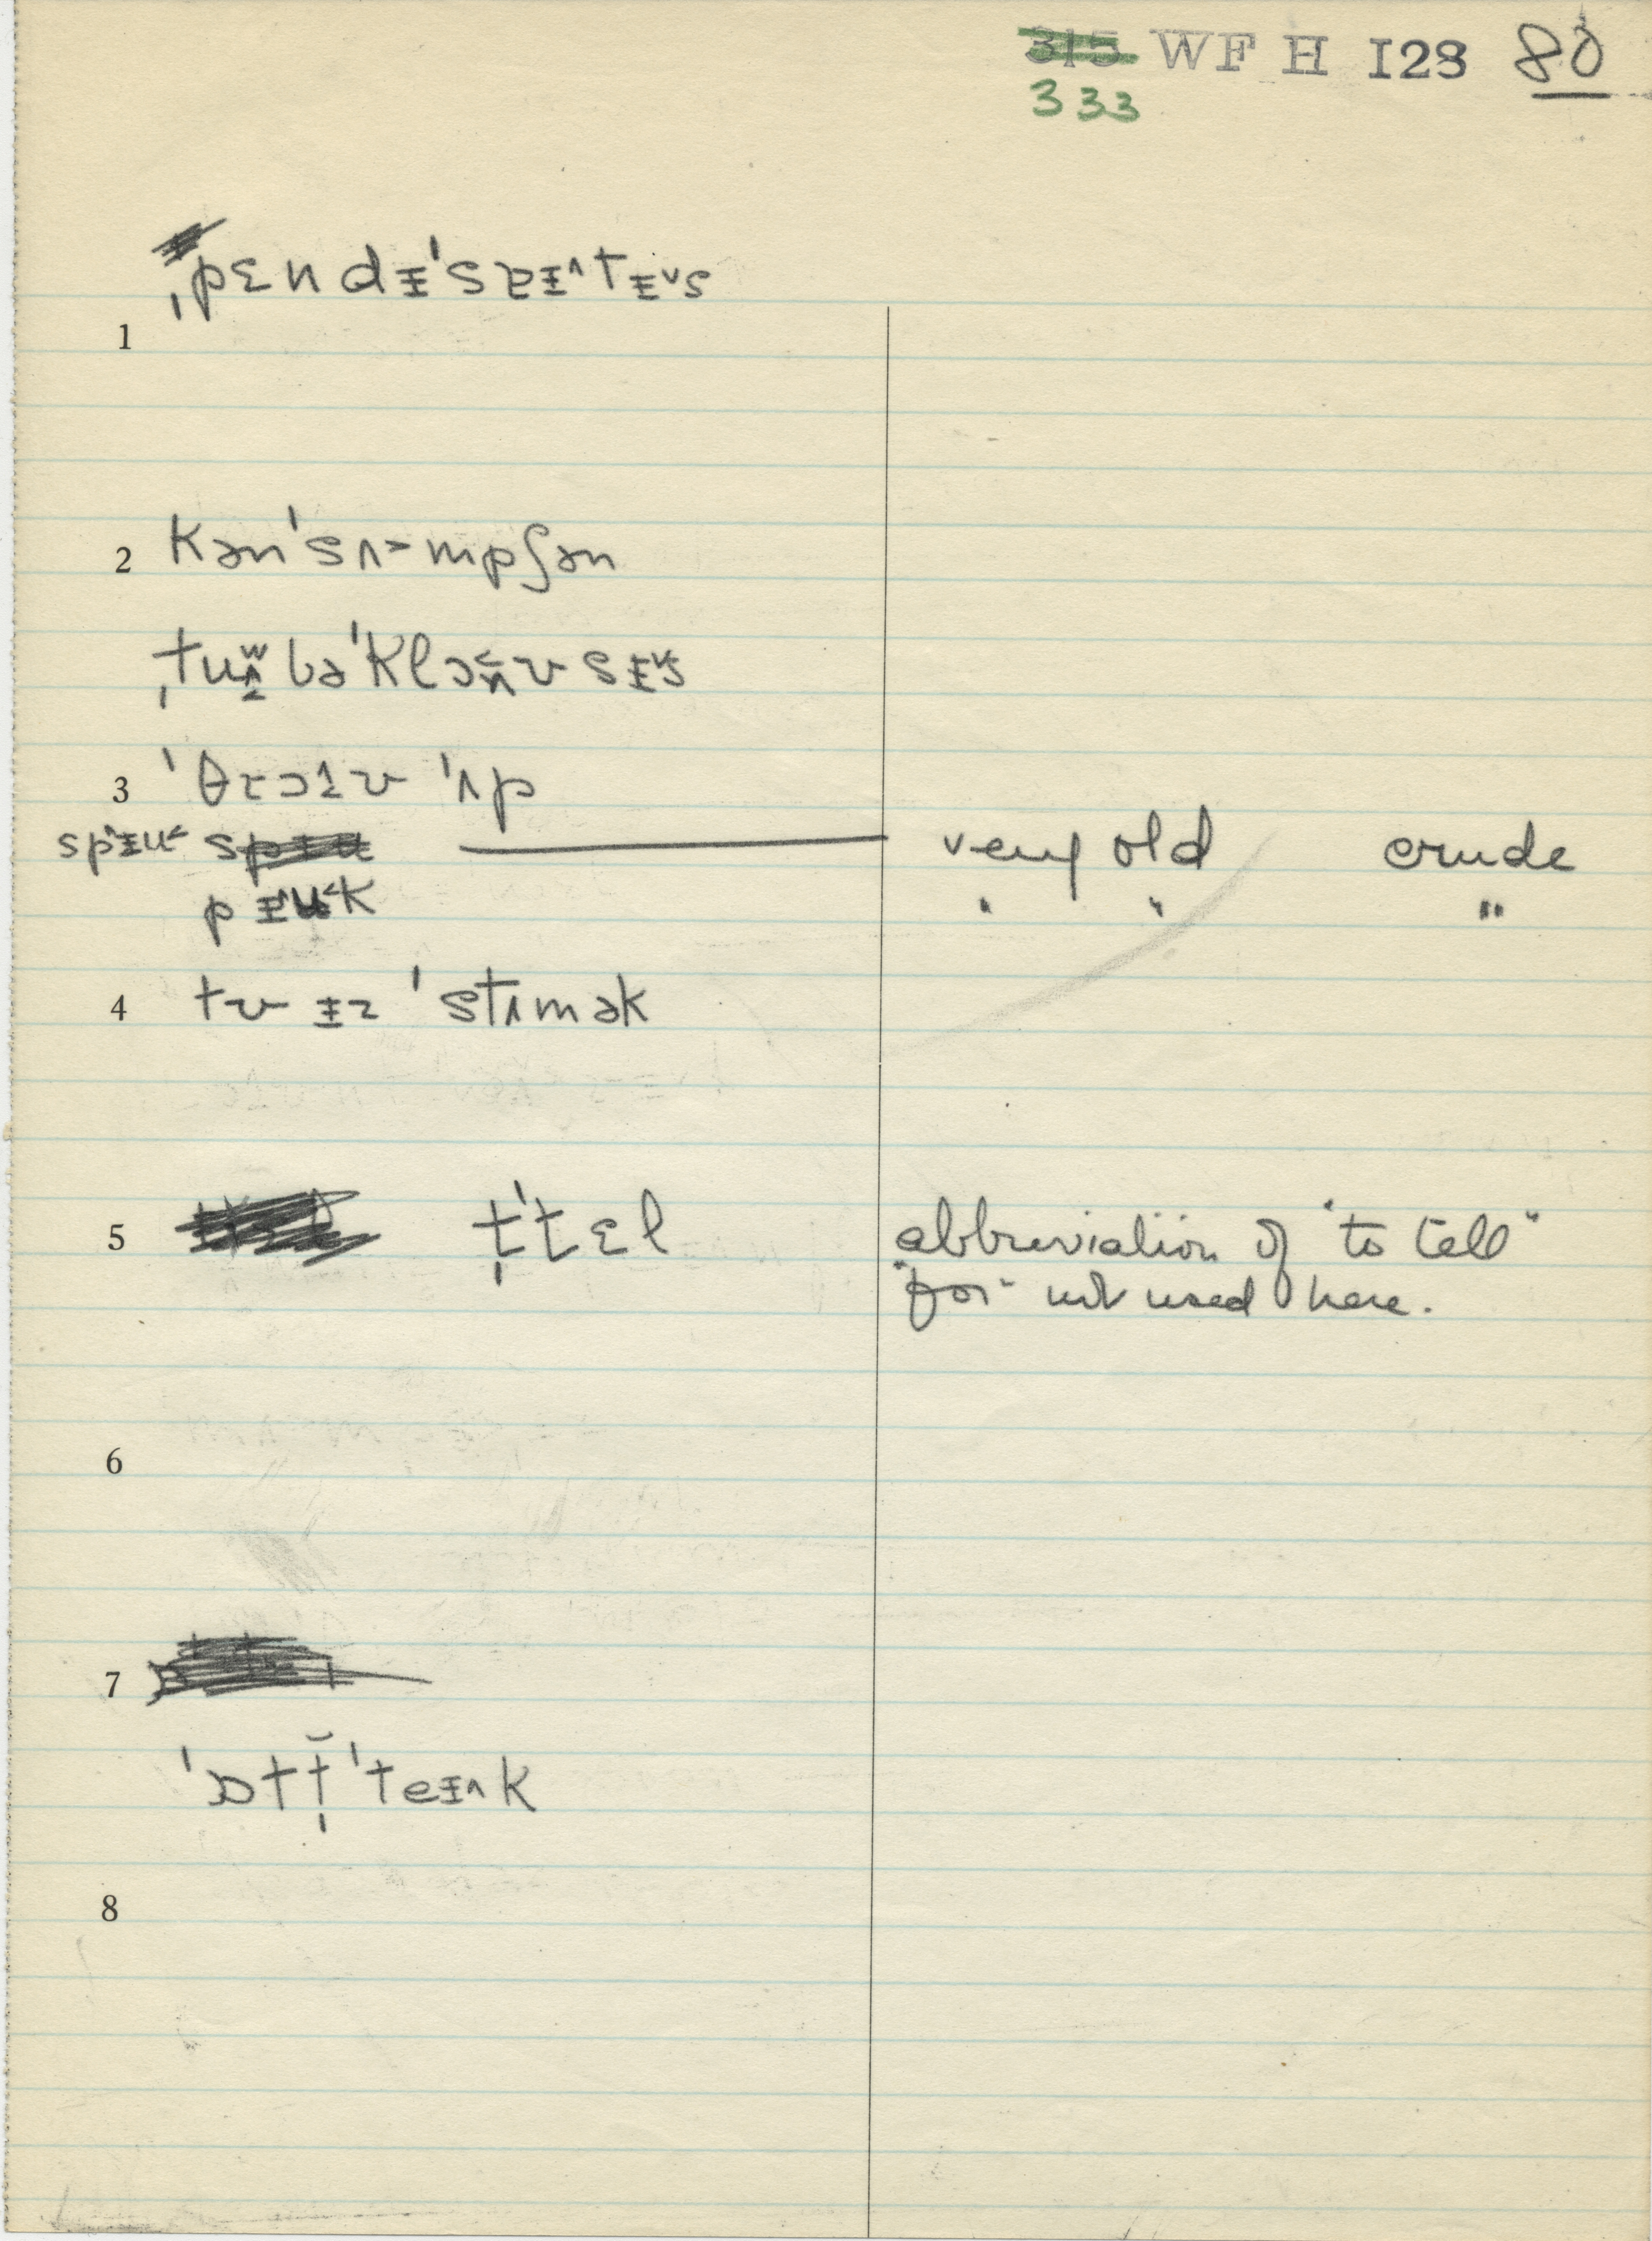 315 WF H I28 80
333
ˌpɛndᵻˈsᴇᵻ^tᵻ˅s
1
2 kənˈsʌ˃mpʃən
ˌtuʌ̫bəˈklɔʌvsᵻ˅s
3 ˈθrɔɪv ˈʌp
spᵻu˂ very old crude
pᵻu˂k " " "
4 tv ᵻz ˈstʌmək
5 t̩ˈtɛl abbreviation of "to tell"
"for" not used here.
6
7
ˈɒtt̩̆ˈteᵻ^k
8